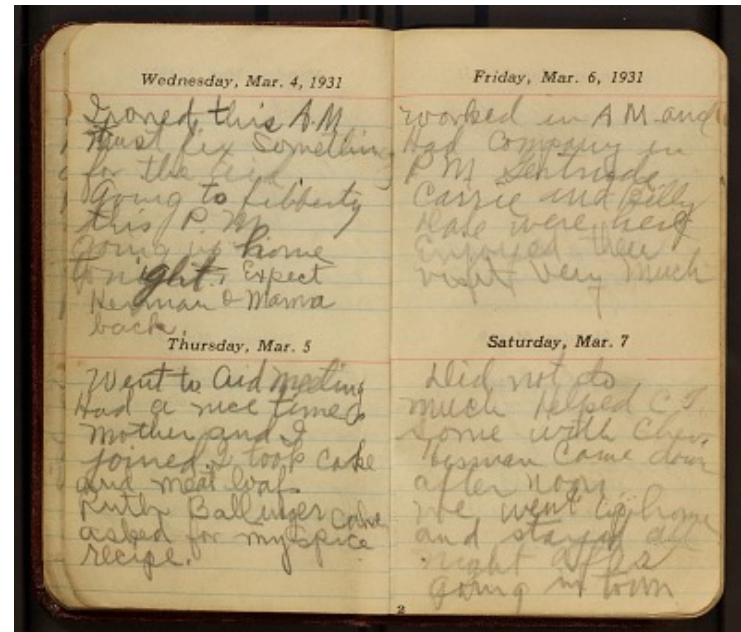 Wednesday, Mar. 4, 1931
Ironed this A.M.
Must fix Something
for the Aid.
Going to Libberty
this P.M.
Going up home
tonight. Expect
Herman & Mama
back.
Thursday, Mar. 5
Went to Aid meeting
Had a nice time
Mother and I
joined. I took cake
and meat loaf.
Ruth Ballinger
asked for my spice cake
recipe.
Friday, Mar. 6, 1931
Worked in A M and
Had Company in
P M Gertrude
Carrie and Billy
Hase were here
Enjoyed their
visit very much
Saturday, Mar. 7
Did not do
much Helped C.T.
Some with Chev.
Herman Came down
after noon
We went up home
and stayed all
night after
going in town
2